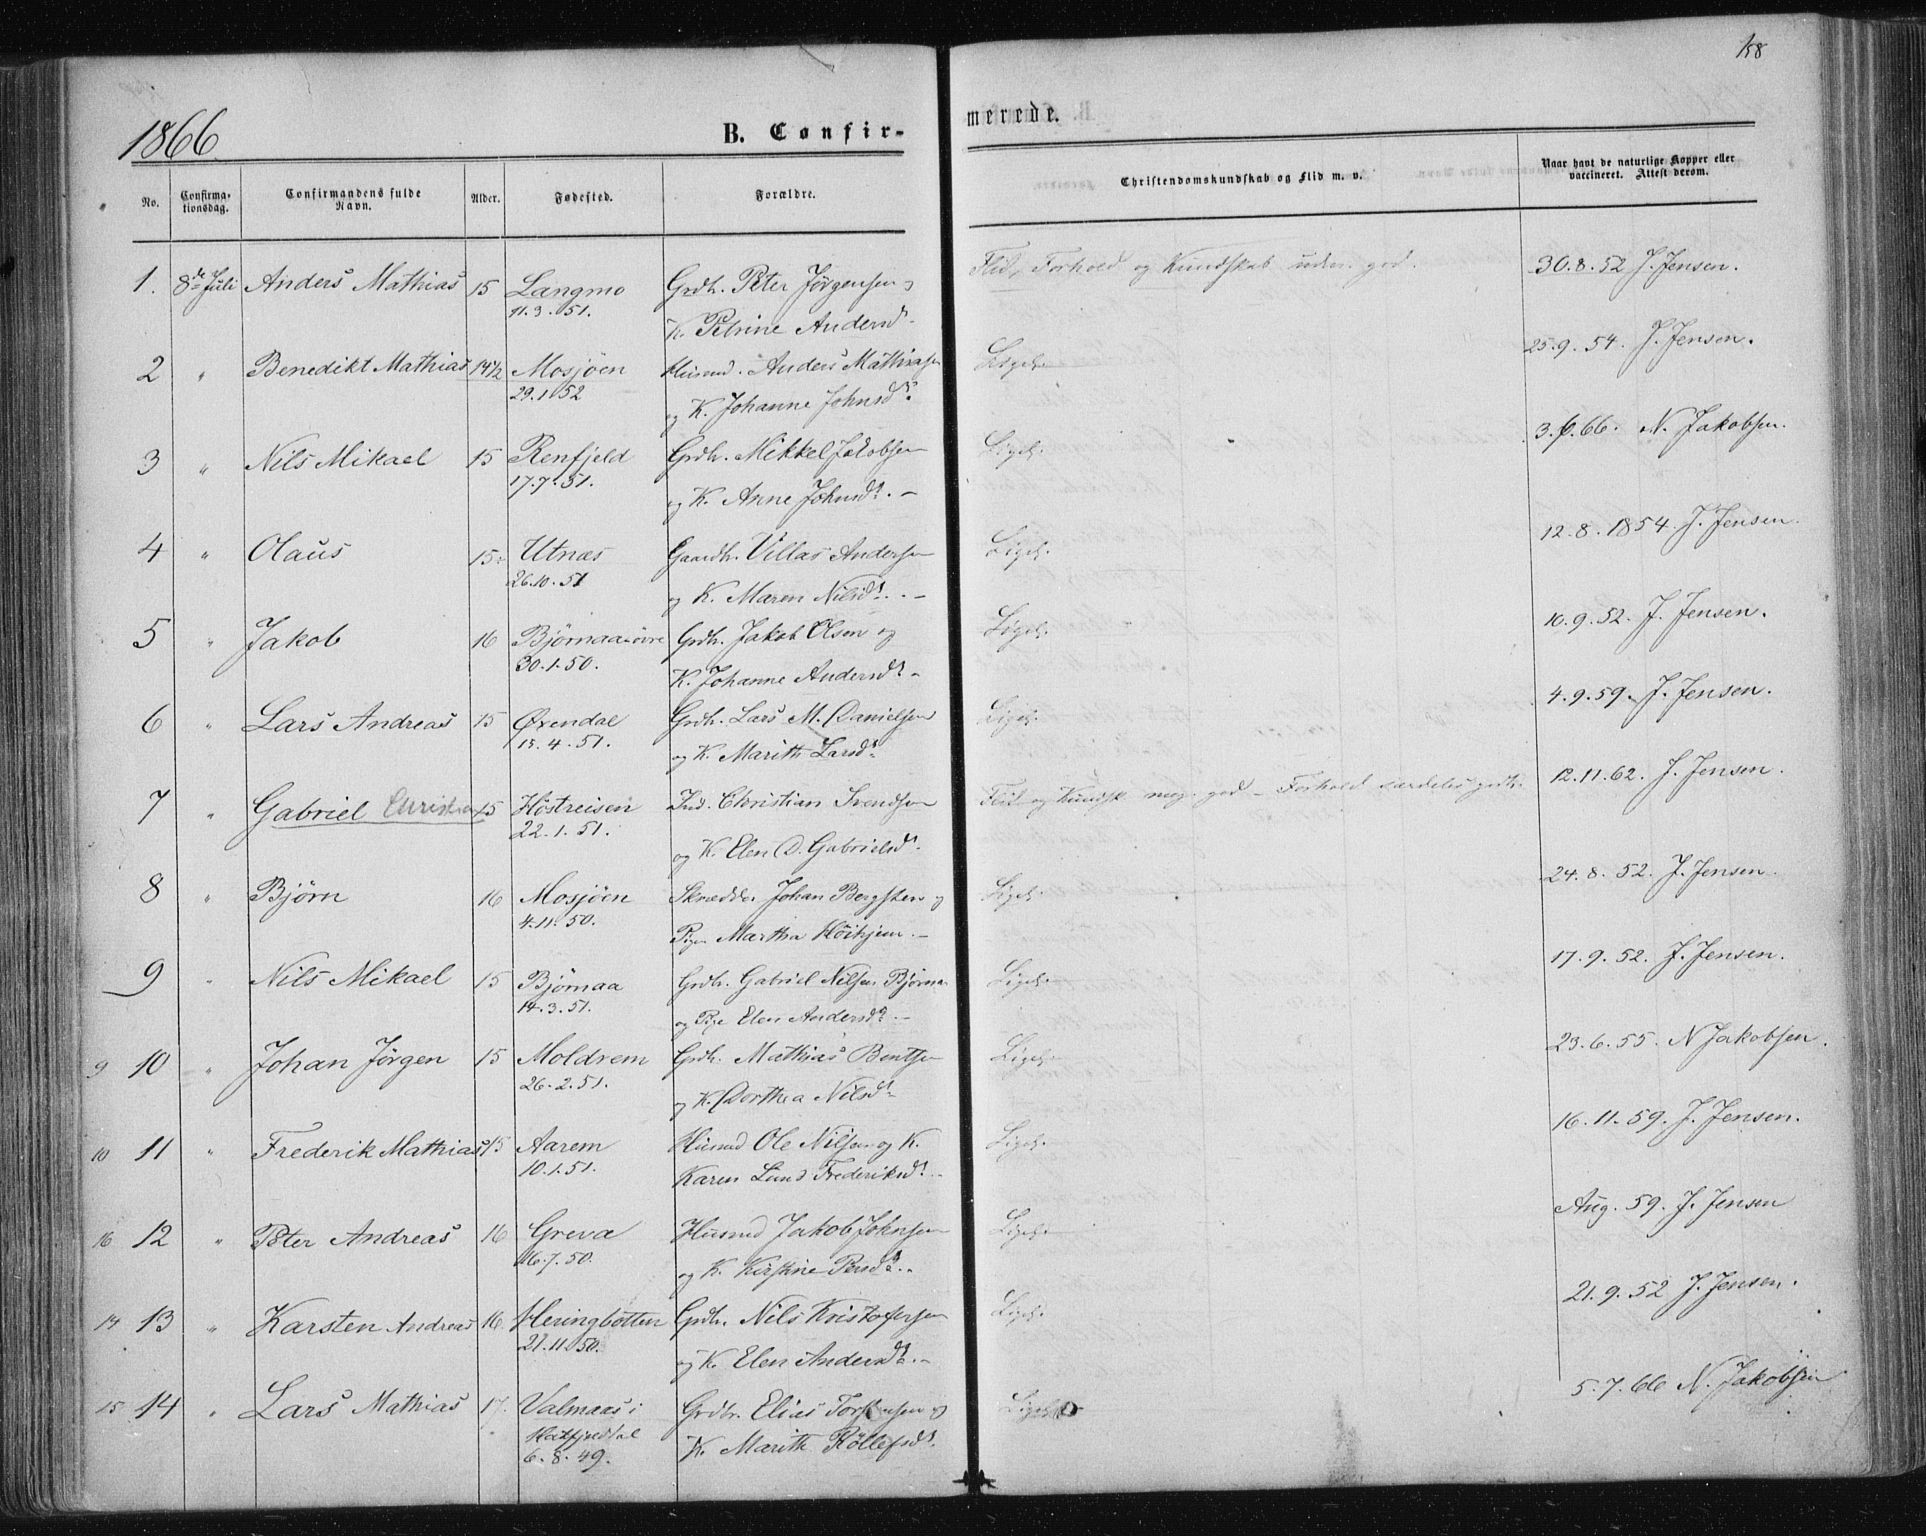 158
1866
B. Confir-
merede.
No.
Confirma-
tionsdag.
Confirmandens fulde
Navn.
Alder.
Fødested.
Forældre.
Christendomskundskab og Flid m. v.
Naar havt de naturlige Kopper eller
vaccineret. Attest derom.
1. 8de Juli Anders Mathias 15 Langmo Grdb. Peter Jørgensen og Flid, Forhold og Kundskab udm. god. 30.8.52 J. Jensen.
11.3.51. K. Petrine Andersd.
2 " Benedikt Mathias 14½ Mosjøen Husmd. Anders Mathiasen Ligel. 25.9.54. J. Jensen.
29.1.52 og K. Johanne Johnsdr.
3 " Nils Mikael 15 Renfjeld Grdb. Mikkel Jakobsen Ligel. 3. 66. N. Jakobsen.
17.7.51. og K. Anne Johnsdr. –
4 " Olaus 15 Utnæs Gaardb. Villas Andersen Ligel. 12.8.1854. J. Jensen.
26.10.51 og K. Maren Nilsdr. –
5 " Jakob 16 Bjørnaa øvre Grdb. Jakob Olsen og Ligel. 10.9.52. J. Jensen.
30.1.50. K. Johanne Andersdr. –
6 " Lars Andreas 15 Øxendal Grdb. Lars M. Danielsen Ligel. 4.9.59. J. Jensen.
15.4.51. og K. Marith Larsdr.
7 " Gabriel Christian 15 Høstreisen Ind. Christian Svendsen Flid og Kundsk. meg. god – Forhold særdeles godt. 12.11.62. J. Jensen.
22.1.51. og K. Elen D. Gabrielsdr.
8 " Bjørn 16 Mosjøen Skrædder Johan Bergsten og Ligel. 24.8.52. J. Jensen.
4.11.50. Pigen Martha Høihjem. –
9 " Nils Mikael 15 Bjørnaa Grdb. Gabriel Nilsen Bjørnaa Ligel. 17.9.52. J. Jensen.
14.3.51. og Pige Elen Andersdr. –
9 10 " Johan Jørgen 15 Moldrem Grdb. Mathias Bentsen Ligel. 23.6.55. N Jakobsen.
26.2.51. og K. Dorthea Nilsdr.
10 11 " Frederik Mathias 15 Aarem Husmd Ole Nilsen og K. Ligel. 16.11.59. J. Jensen.
10.1.51. Karen Lund Frederiksdr. –
16 12 " Peter Andreas 16 Greva Husmd Jakob Johnsen Ligel. Aug. 59. J. Jensen
16.7.50. og K. Kirstine Persdr. –
14 13 " Karsten Andreas 16. Heringbotten Grdb. Nils Kristofersen Ligel. 21.9.52 J. Jensen.
21.11.50. og K. Elen Andersdr. –
15 14 " Lars Mathias 17. Valmaas i Grdbr. Elias Torstensen og Ligel. 5.7.66 N. Jakobsen
Hatfjeldal K. Marith Rollefsdr.
6.8.49.